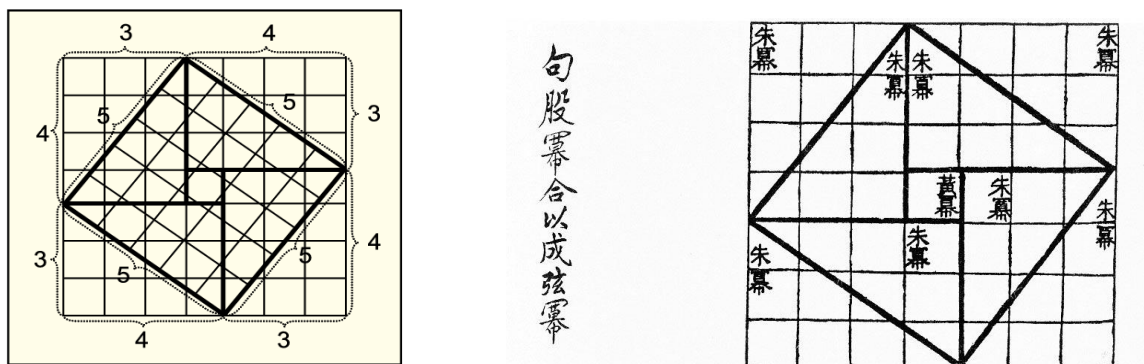 3 4
5 5
4 3
3 4
5 5
4 3
句股冪合以成弦冪
朱冪 朱冪
朱冪 朱冪
黃冪 朱冪
朱冪 朱冪 朱冪